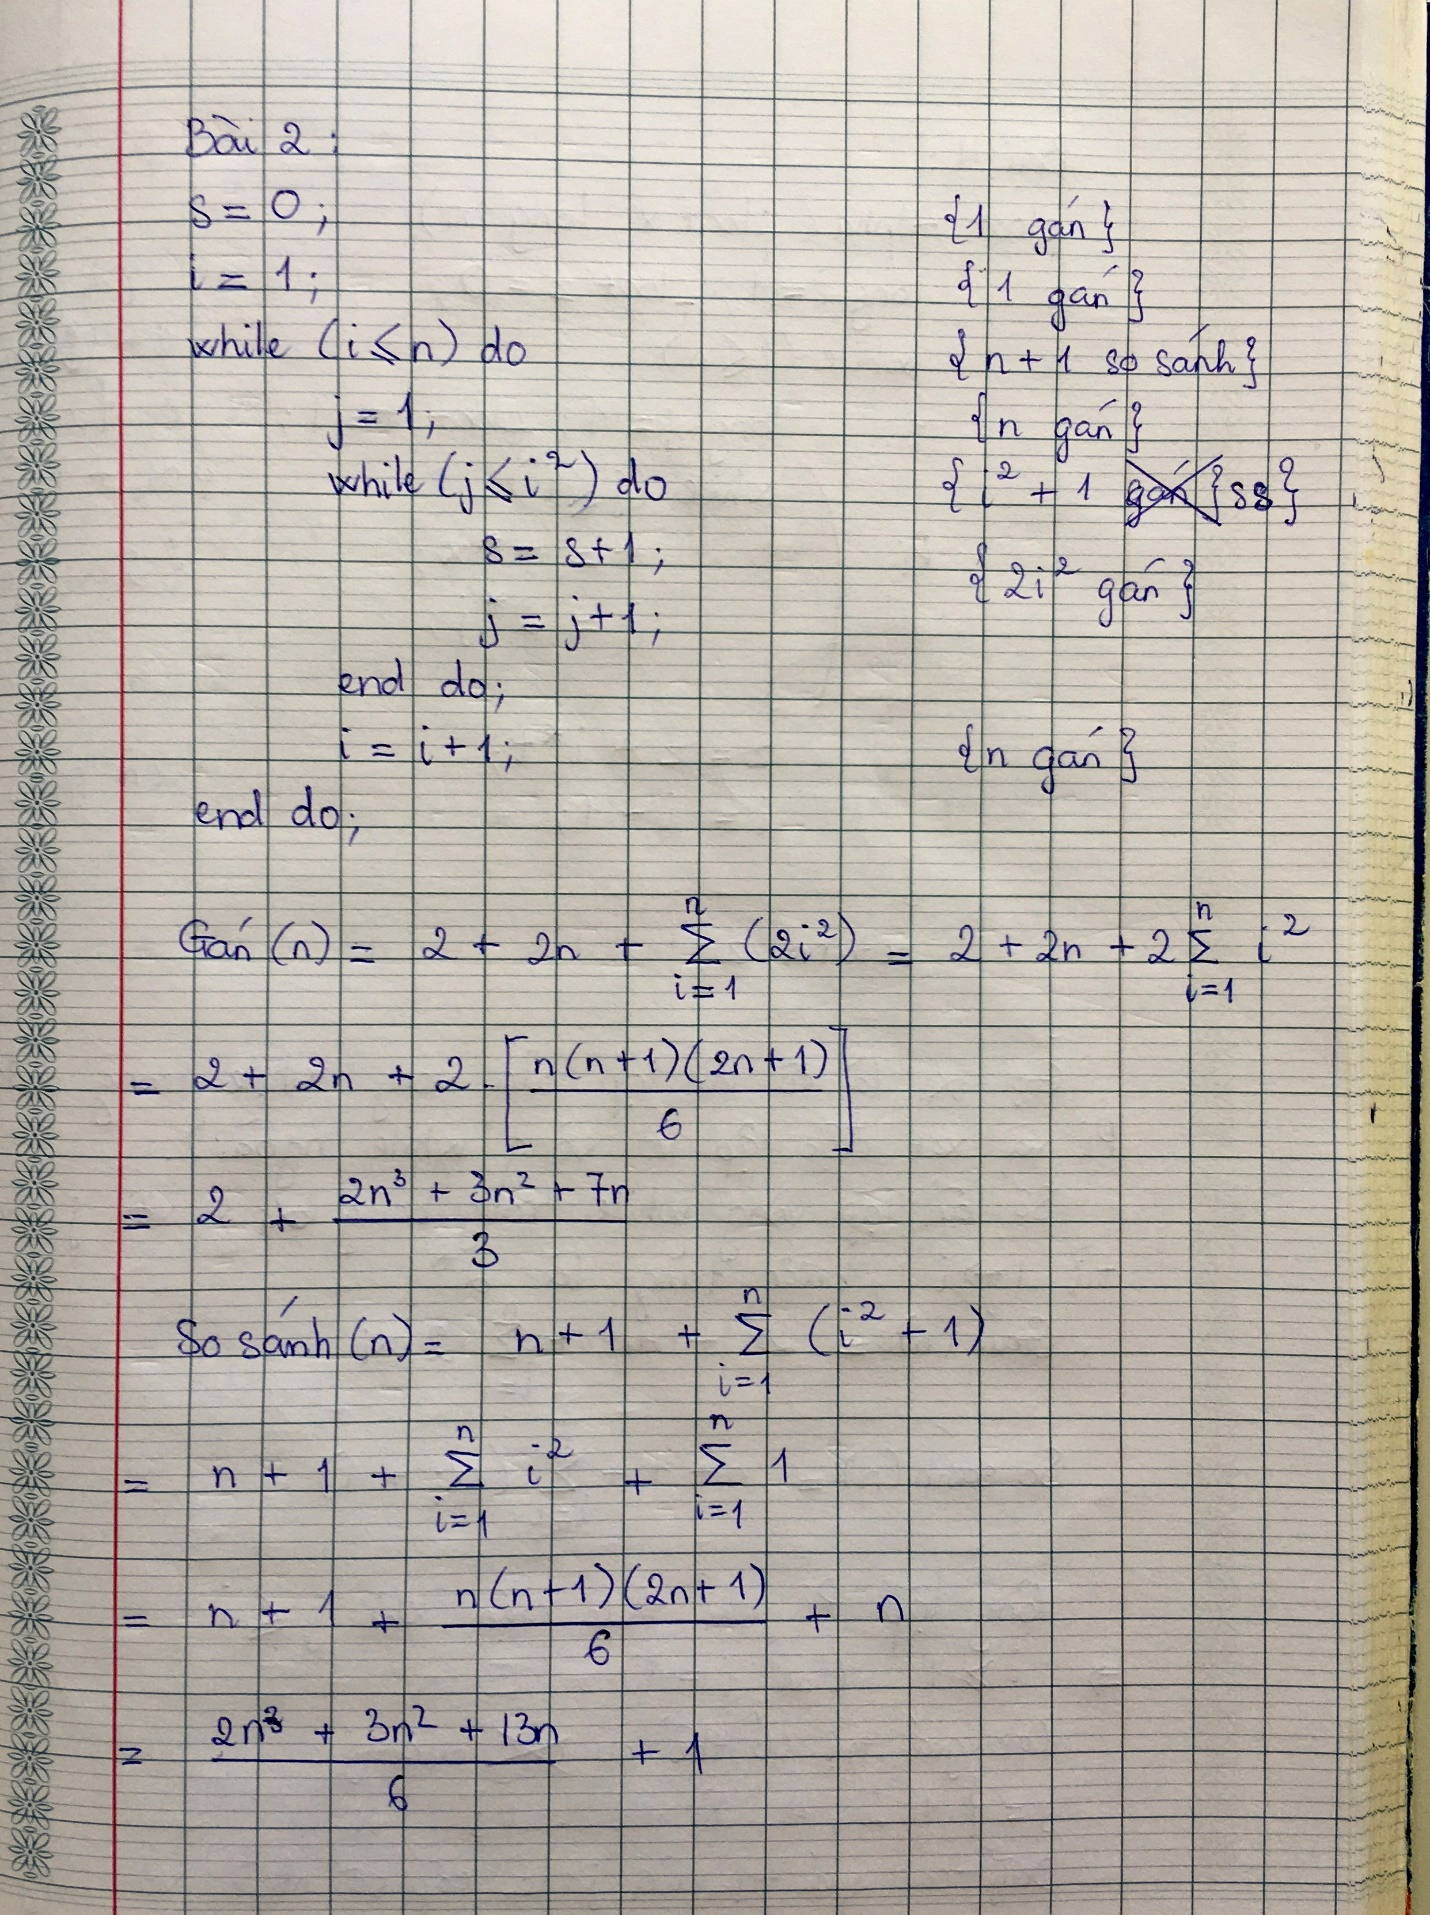 Bài 2:
s = 0; {1 gán}
i = 1; {1 gán}
while (i ≤ n) do {n + 1 so sánh}
j = 1; {n gán}
while (j ≤ i²) do {i² + 1 gán} ss}
s = s + 1;
{2i² gán}
j = j + 1;
end do;
i = i + 1; {n gán}
end do;
Gán (n) = 2 + 2n + ∑_{i=1}^{n} (2i²) = 2 + 2n + 2 ∑_{i=1}^{n} i²
= 2 + 2n + 2 . [n(n+1)(2n+1) / 6]
= 2 + (2n³ + 3n² + 7n) / 3
So sánh (n) = n + 1 + ∑_{i=1}^{n} (i² + 1)
= n + 1 + ∑_{i=1}^{n} i² + ∑_{i=1}^{n} 1
= n + 1 + n(n+1)(2n+1) / 6 + n
= (2n³ + 3n² + 13n) / 6 + 1